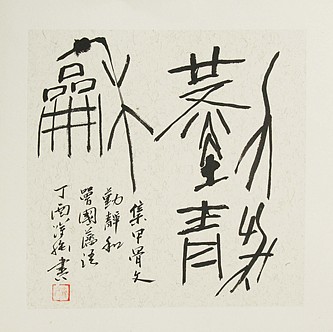 勤靜
龢
集甲骨文
勤靜和
曾國藩語
丁酉書